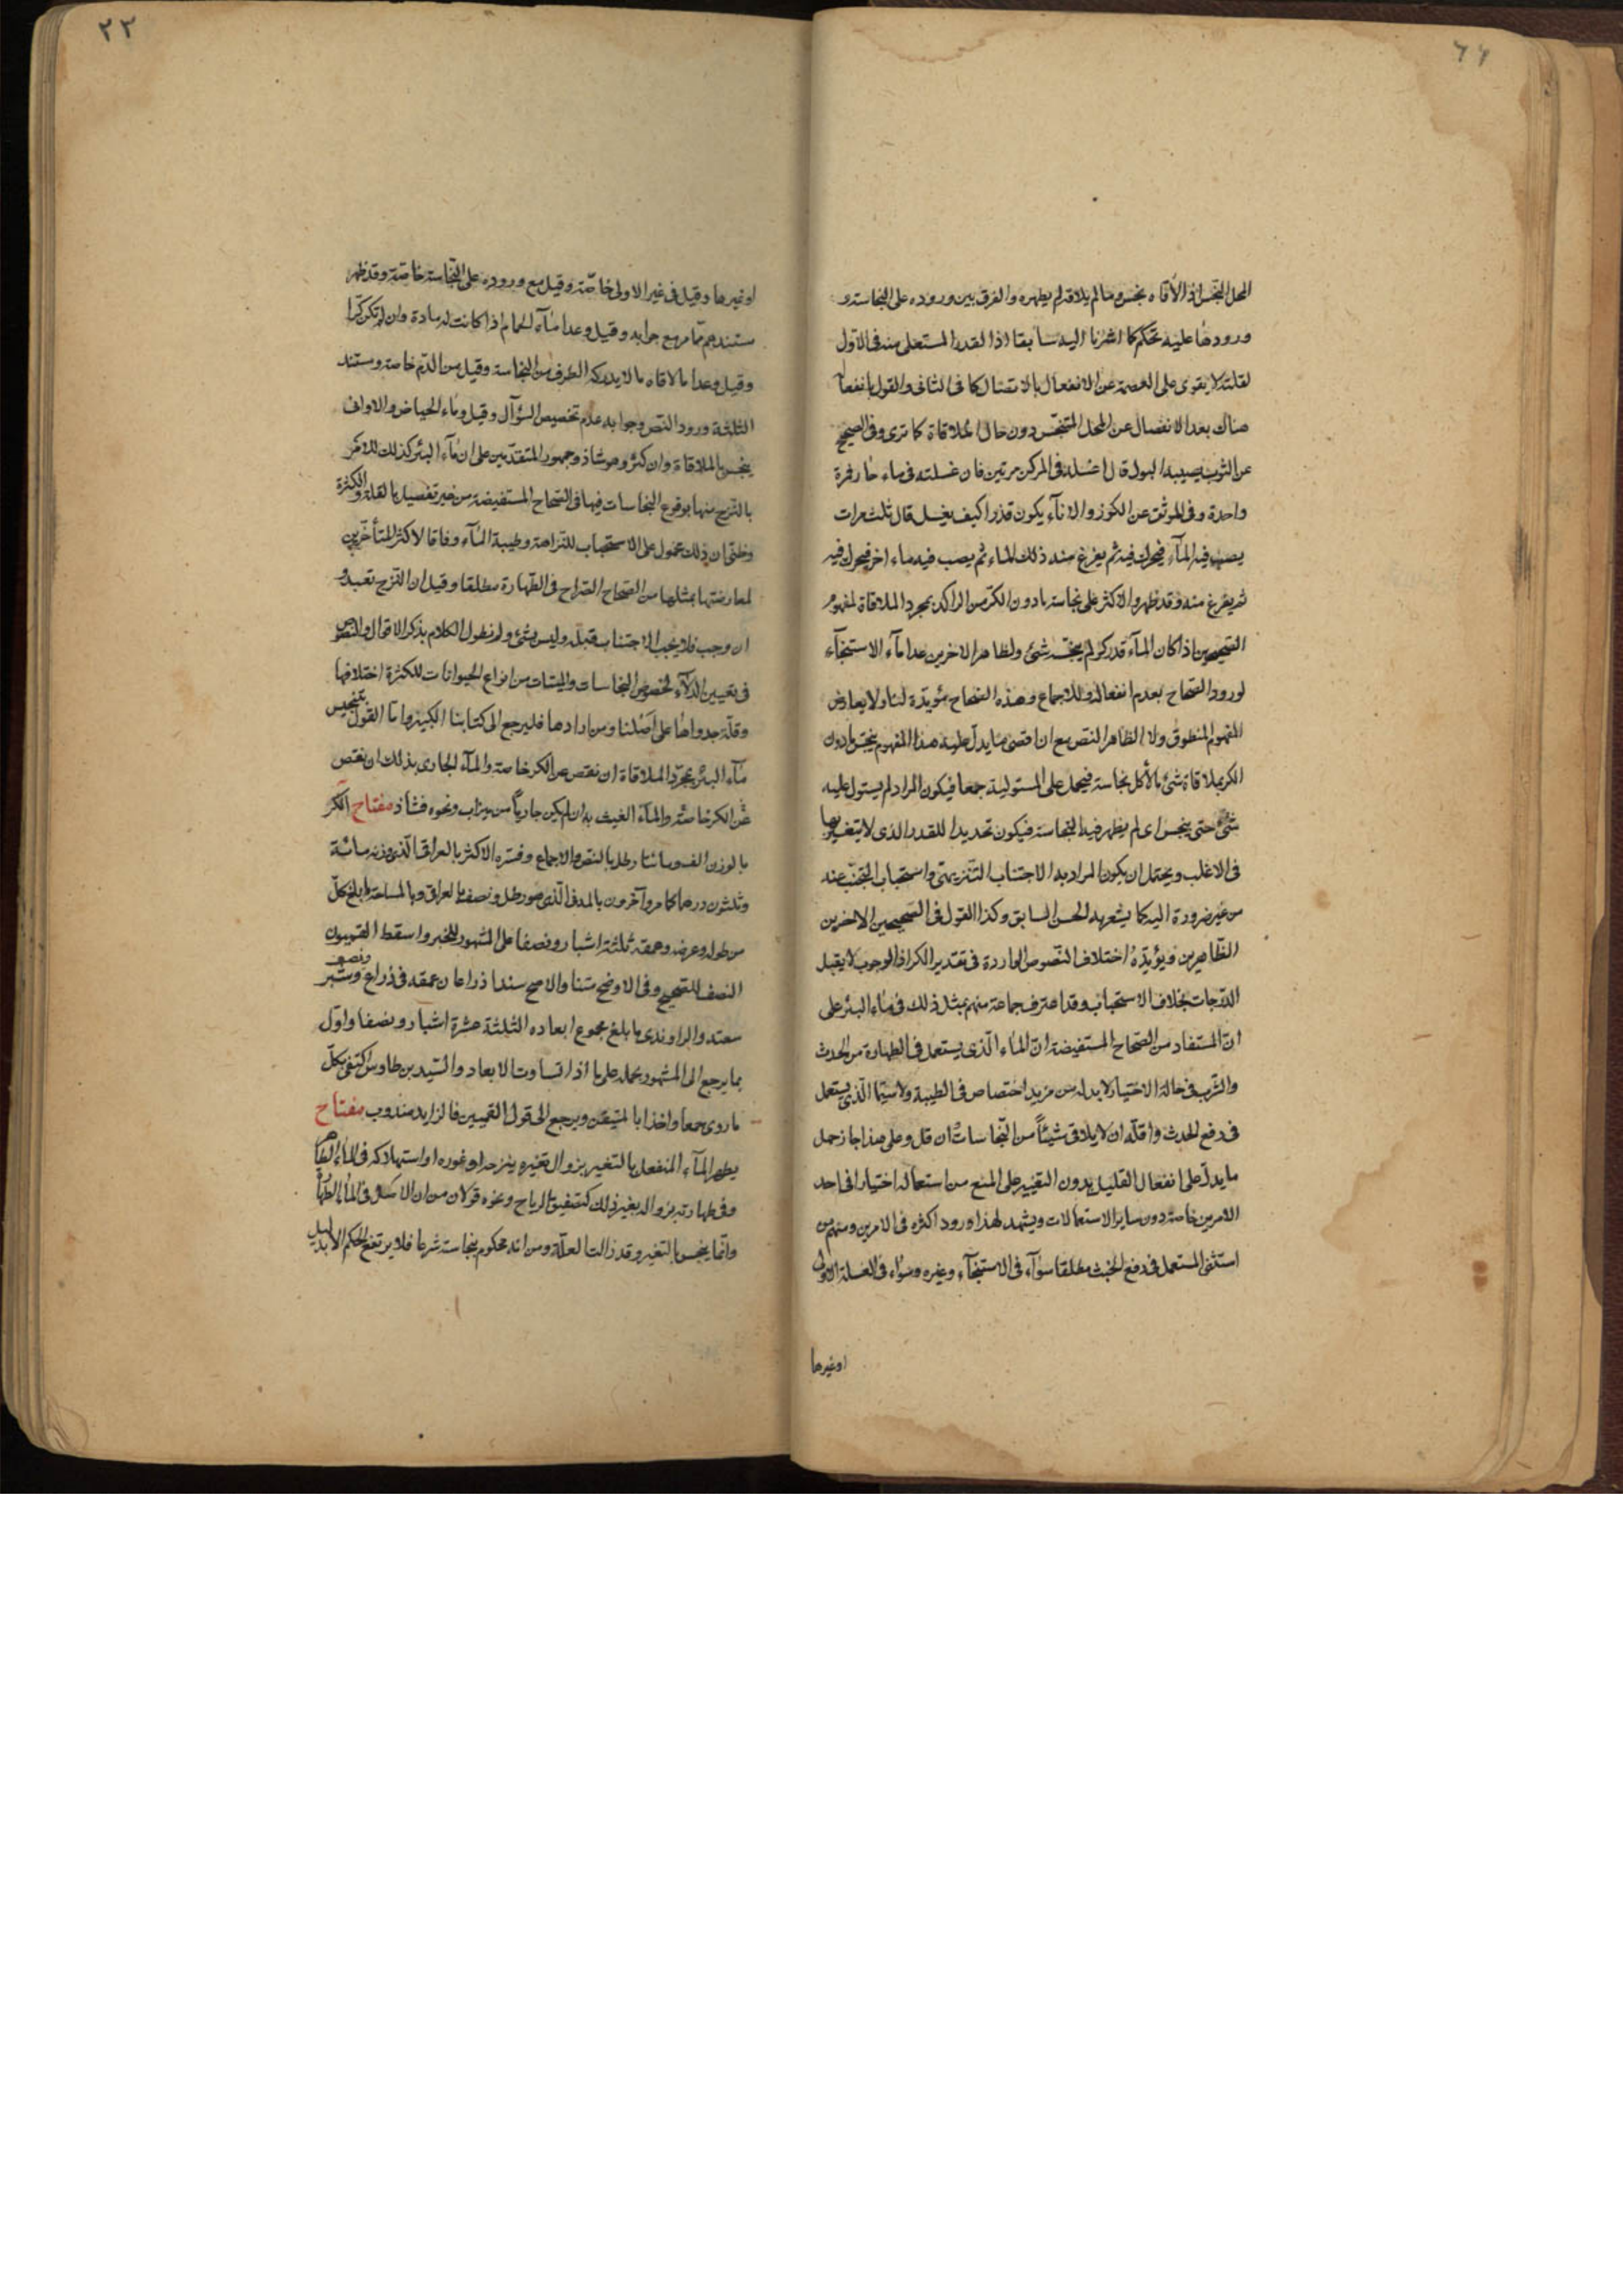 المحل النجس اذ الاقاه نجس وما لم يلاقه لم يطهره والفرق بين وروده على النجاسة و
ورودها عليه تحكم كما اشرنا اليه سابقا اذ القدر المستعلى منه فى الاول
لقلته لا يقوى على العصمة عن الانفعال بالاتصال كما فى الثانى والقول بانفعا
هناك بعد الانفصال عن المحل المتنجس دون حال الملاقاة كما ترى وفى الصحيح
عن الثوب يصيبه البول قال اغسله فى المركن مرتين فان غسلته فى ماء جار فمرة
واحدة وفى الموثق عن الكوز والاناء يكون قذرا كيف يغسل قال ثلث مرات
يصب فيه المآء فيحرك فيه ثم يفرغ منه ذلك الماء ثم يصب فيه ماء اخر فيحرك فيه
ثم يفرغ منه وقد ظهر والاكثر على نجاسة ما دون الكر من الراكد بمجرد الملاقاة لمفهوم
الصحيحين اذا كان المآء قدر كر لم ينجسه شئ ولظاهر الاخرين عدا مآء الاستنجآء
لورود الصحاح بعدم انفعاله وللاجماع وهذه الصحاح مؤيدة لنا ولا يعارض
المفهوم المنطوق ولا الظاهر النص مع ان اقصى ما يدل عليه هذا المفهوم تنجس ما دون
الكر بملاقاة شئ ما لا كل نجاسة فيحمل على المستولية جمعا فيكون المراد لم يستول عليه
شئ حتى ينجس اى لم يظهر فيه النجاسة فيكون تحديدا للقدر الذى لا يتغير بها
فى الاغلب ويحتمل ان يكون المراد به الاجتناب التنزيهى واستحباب التجنب عنه
من غير ضرورة اليه كما يشعر به الحسن السابق وكذا القول فى الصحيحين الاخرين
الظاهرين ويؤيده اختلاف النصوص الواردة فى تقدير الكر اذ الوجوب لا يقبل
الدرجات بخلاف الاستحباب وقد اعترف جماعة منهم بمثل ذلك فى ماء البئر على
ان المستفاد من الصحاح المستفيضة ان الماء الذى يستعمل فى الطهارة من الحدث
والشرب فى حالة الاختيار لابد له من مزيد اختصاص فى الطيبة ولا سيما الذى يستعمل
فى دفع الحدث واقله ان لا يلاقى شيئاً من النجاسات وان قل وعلى هذا جاز حمل
ما يدل على انفعال القليل بدون التغيير على المنع من استعماله اختيارا فى احد
الامرين خاصة دون ساير الاستعمالات ويشهد لهذا ورود اكثره فى الامرين ومنهم من
استثنى المستعمل فى دفع الخبث مطلقا سوآء فى الاستنجآء وغيره وسواء فى الغسلة الاولى
او غيرها
٢٣
او غيرها وقيل فى غير الاولى خاصة وقيل مع وروده على النجاسة خاصة وقد ظهر
مستندهم مما مر مع جوابه وقيل وعدا مآء الحمام اذا كانت له مادة وان لم تكن كرا
وقيل وعدا ما لاقاه ما لا يدركه الطرف من النجاسة وقيل من الدم خاصة ومستند
الثلثة ورود النص وجوابه عدم تخصيص السؤال وقيل وماء الحياض والاوانى
ينجس بالملاقاة وان كثر وهو شاذ وجمهور المتقدمين على ان مآء البئر كذلك للامر
بالنزح منها بوقوع النجاسات فيها فى الصحاح المستفيضة من غير تفصيل بالقلة والكثرة
وظنى ان ذلك محمول على الاستحباب للنزاهة وطيبة المآء وفاقا لاكثر المتأخرين
لمعارضتها بمثلها من الصحاح الصراح فى الطهارة مطلقا وقيل ان النزح تعبد و
ان وجب فلا يجب الاجتناب قبله وليس بشئ ولم نطول الكلام بذكر الاقوال والنصوص
فى تعيين الدلاء لخصوص النجاسات والميتات من انواع الحيوانات للكثرة اختلافها
وقلة جدواها على اصلنا ومن ارادها فليرجع الى كتابنا الكبير واما القول بتنجيس
مآء البئر بمجرد الملاقاة ان نقص عن الكر خاصة والمآء الجارى بذلك ان نقص
عن الكر خاصة والمآء الغيث به ان لم يكن جارياً من ميزاب ونحوه فشاذ مفتاح الكر
بالوزن الف ومائتا رطل بالنص والاجماع وفسره الاكثر بالعراقى الذى وزنه مائة
وثلثون درهما كما مر وآخرون بالمدنى الذى هو رطل ونصف بالعراقى وبالمساحة ما بلغ كل
من طوله وعرضه وعمقه ثلثة اشبار ونصفا على المشهور للخبر واسقط القميون
النصف للصحيح وفى الاوضح متنا والاصح سندا ذراعان عمقه فى ذراع ونصف وشبر
سعته والراوندى ما بلغ مجموع ابعاده الثلثة عشرة اشبار ونصفا واول
بما يرجع الى المشهور بحمله على ما اذا تساوت الابعاد والسيد بن طاوس اكتفى بكل
ما روى جمعا واخذا بالمتيقن ويرجع الى قول القميين فالزايد مندوب مفتاح
يطهر المآء المنفعل بالتغير بزوال تغيره بنزحه او غوره او استهلاكه فى الماء الطاهر
وفى طهارته بزواله بغير ذلك كتصفيق الرياح ونحوه قولان من ان الاصل فى الماء الطهارة
وانما ينجس بالتغير وقد زالت العلة ومن انه محكوم بنجاسته شرعا فلا يرتفع الحكم الا بدليل